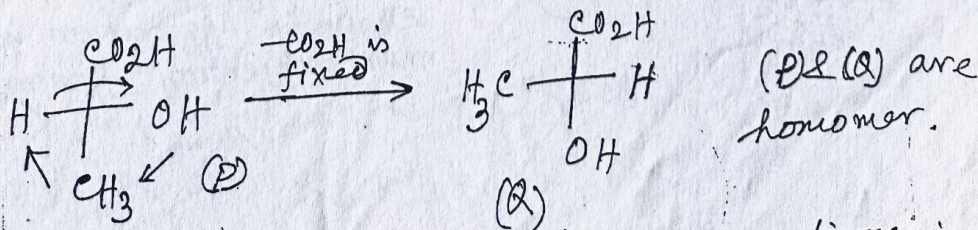 CO2H
H OH
CH3 (P)
-CO2H is
fixed
CO2H
H3C H
OH
(Q)
(P) & (Q) are
homomer.